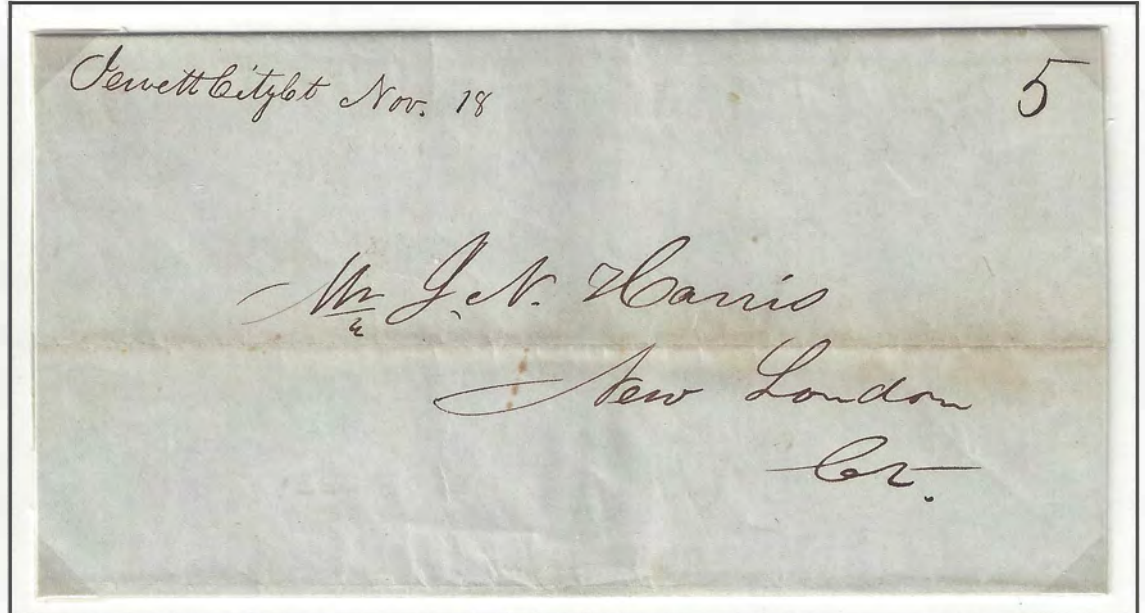 Jewett City Ct Nov. 18
5
Mr J. N. Harris
New London
Ct.